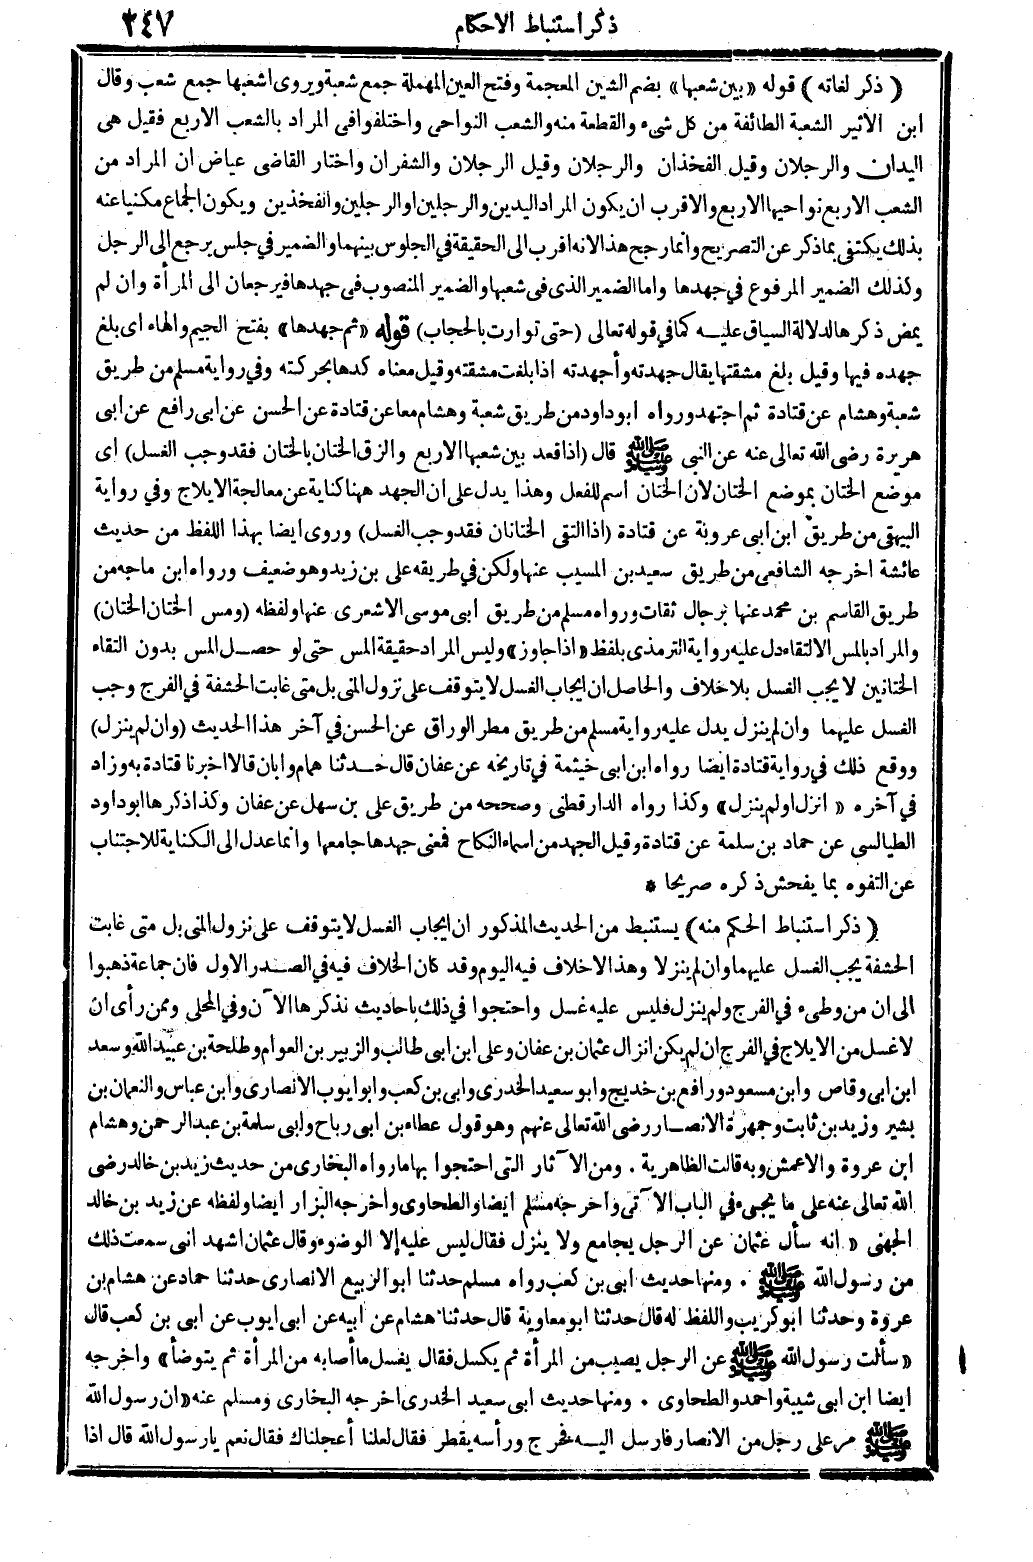 ذكر استنباط الاحكام
٢٤٧
( ذكر لغاته ) قوله «بين شعبها» بضم الشين المعجمة وفتح العين المهملة جمع شعبة ويروى اشعبها جمع شعب وقال
ابن الاثير الشعبة الطائفة من كل شىء والقطعة منه والشعب النواحى واختلفوا فى المراد بالشعب الاربع فقيل هى
اليدان والرجلان وقيل الفخذان والرجلان وقيل الرجلان والشفران واختار القاضى عياض ان المراد من
الشعب الاربع نواحيها الاربع والاقرب ان يكون المراد اليدين والرجلين او الرجلين والفخذين ويكون الجماع مكنيا عنه
بذلك يكتفى بما ذكر عن التصريح وانما رجح هذا لانه اقرب الى الحقيقة في الجلوس بينهما والضمير في جلس يرجع الى الرجل
وكذلك الضمير المرفوع في جهدها واما الضمير الذى فى شعبها والضمير المنصوب فى جهدها فيرجعان الى المرأة وان لم
يمض ذكرها لدلالة السياق عليه كما في قوله تعالى (حتى توارت بالحجاب) قوله «ثم جهدها» بفتح الجيم والهاء اى بلغ
جهده فيها وقيل بلغ مشقتها يقال جهدته وأجهدته اذا بلغت مشقته وقيل معناه كدها بحركته وفي رواية مسلم من طريق
شعبة وهشام عن قتادة ثم اجتهد ورواه ابو داود من طريق شعبة وهشام معا عن قتادة عن الحسن عن ابى رافع عن ابى
هريرة رضى الله تعالى عنه عن النبى ﷺ قال (اذا قعد بين شعبها الاربع والزق الختان بالختان فقد وجب الغسل) اى
موضع الختان بموضع الختان لان الختان اسم للفعل وهذا يدل على ان الجهد ههنا كناية عن معالجة الايلاج وفي رواية
البيهقى من طريق ابن ابى عروبة عن قتادة (اذا التقى الختانان فقد وجب الغسل) وروى ايضا بهذا اللفظ من حديث
عائشة اخرجه الشافعى من طريق سعيد بن المسيب عنها ولكن في طريقه على بن زيد وهو ضعيف ورواه ابن ماجه من
طريق القاسم بن محمد عنها برجال ثقات ورواه مسلم من طريق ابى موسى الاشعرى عنها ولفظه (ومس الختان الختان)
والمراد بالمس الالتقاء دل عليه رواية الترمذى بلفظ «اذا جاوز» وليس المراد حقيقة المس حتى لو حصل المس بدون التقاء
الختانين لا يجب الغسل بلا خلاف والحاصل ان ايجاب الغسل لا يتوقف على نزول المنى بل متى غابت الحشفة في الفرج وجب
الغسل عليهما وان لم ينزل يدل عليه رواية مسلم من طريق مطر الوراق عن الحسن في آخر هذا الحديث (وان لم ينزل)
ووقع ذلك في رواية قتادة ايضا رواه ابن ابى خيثمة في تاريخه عن عفان قال حدثنا همام وابان قالا اخبرنا قتادة به وزاد
في آخره « انزل او لم ينزل» وكذا رواه الدارقطنى وصححه من طريق على بن سهل عن عفان وكذا ذكرها ابو داود
الطيالسى عن حماد بن سلمة عن قتادة وقيل الجهد من اسماء النكاح فمعنى جهدها جامعها وانما عدل الى الكناية للاجتناب
عن التفوه بما يفحش ذكره صريحا *
( ذكر استنباط الحكم منه) يستنبط من الحديث المذكور ان ايجاب الغسل لا يتوقف على نزول المنى بل متى غابت
الحشفة يجب الغسل عليهما وان لم ينزلا وهذا لاخلاف فيه اليوم وقد كان الخلاف فيه في الصدر الاول فان جماعة ذهبوا
الى ان من وطىء في الفرج ولم ينزل فليس عليه غسل واحتجوا في ذلك باحاديث نذكرها الآن وفي المحلى وممن رأى ان
لا غسل من الايلاج في الفرج ان لم يكن انزال عثمان بن عفان وعلى ابن ابى طالب والزبير بن العوام وطلحة بن عبيد الله وسعد
ابن ابى وقاص وابن مسعود ورافع بن خديج وابو سعيد الخدرى وابى بن كعب وابو ايوب الانصارى وابن عباس والنعمان بن
بشير وزيد بن ثابت وجمهرة الانصار رضى الله تعالى عنهم وهو قول عطاء بن ابى رباح وابى سلمة بن عبد الرحمن وهشام
ابن عروة والاعمش وبه قالت الظاهرية . ومن الآثار التى احتجوا بها ما رواه البخارى من حديث زيد بن خالد رضى
الله تعالى عنه على ما يجىء في الباب الآتى واخرجه مسلم ايضا والطحاوى واخرجه البزار ايضا ولفظه عن زيد بن خالد
الجهنى « انه سأل عثمان عن الرجل يجامع ولا ينزل فقال ليس عليه إلا الوضوء وقال عثمان اشهد انى سمعت ذلك
من رسول الله ﷺ . ومنها حديث ابى بن كعب رواه مسلم حدثنا ابو الربيع الانصارى حدثنا حماد عن هشام بن
عروة وحدثنا ابو كريب واللفظ له قال حدثنا ابو معاوية قال حدثنا هشام عن ابيه عن ابى ايوب عن ابى بن كعب قال
«سألت رسول الله ﷺ عن الرجل يصيب من المرأة ثم يكسل فقال يغسل ما أصابه من المرأة ثم يتوضأ» واخرجه
ايضا ابن ابى شيبة واحمد والطحاوى . ومنها حديث ابى سعيد الخدرى اخرجه البخارى ومسلم عنه «ان رسول الله
ﷺ مر على رجل من الانصار فارسل اليه فخرج ورأسه يقطر فقال لعلنا أعجلناك فقال نعم يارسول الله قال اذا